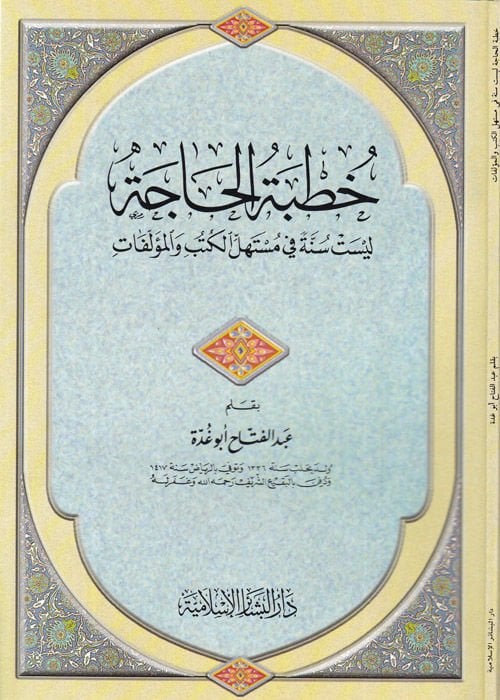 خُطْبَةُ الحَاجَةِ
لَيْسَتْ سُنَّةً فِي مُسْتَهَلِّ الكُتُبِ وَالمُؤَلَّفَاتِ
بقلم
عبد الفتّاح أبو غُدّة
وُلد بحلب سنة ١٣٣٦ وتوفي بالرياض سنة ١٤١٧
ودُفن بالبقيع الشريف رحمه الله وغفر له
دَارُ البَشَائِرِ الإِسْلَامِيَّةِ
خطبة الحاجة ليست سنة في مستهل الكتب والمؤلفات
بقلم عبد الفتاح أبو غدة
دار البشائر الإسلامية